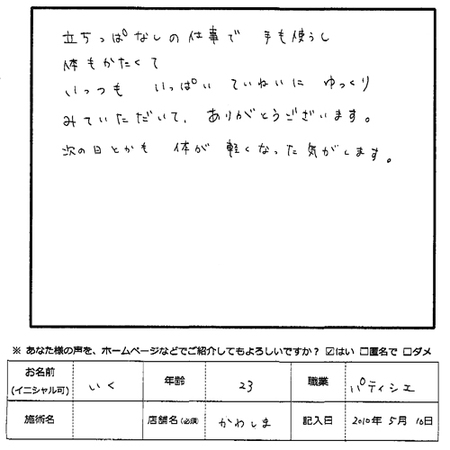 立ちっぱなしの仕事で 手も使うし
体もかたくて
いつも いっぱい ていねいに ゆっくり
みていただいて、ありがとうございます。
次の日とかも 体が 軽くなった気がします。
※ あなた様の声を、ホームページなどでご紹介してもよろしいですか？ ☑はい □匿名で □ダメ
お名前
(イニシャル可) いく 年齢 23 職業 パティシエ
施術名 店舗名(必須) かわしま 記入日 2010年 5月 10日